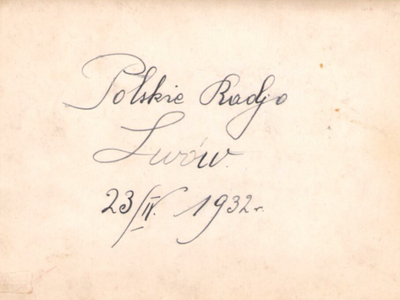 Polskie Radjo
Lwów.
23/II. 1932r.